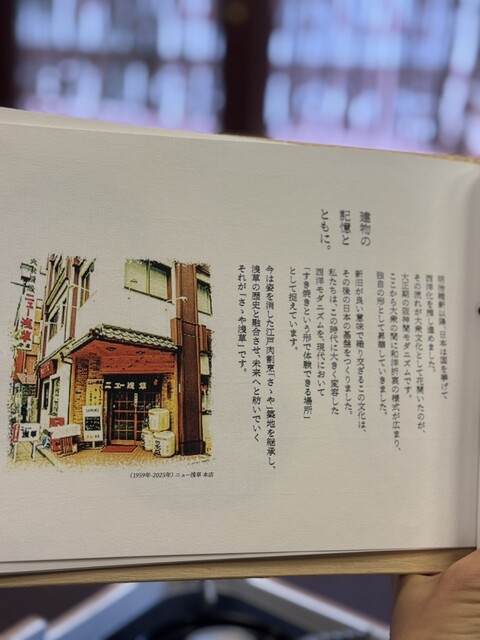 建物の
記憶と
ともに。
明治維新以降、日本は国を挙げて
西洋化を推し進めました。
その流れが大衆文化として花開いたのが、
大正期の阪神間モダニズムです。
ここから大衆の間に和洋折衷の様式が広まり、
独自の形として昇華していきました。
新旧が良い意味で織り交ざるこの文化は、
その後の日本の基盤をつくりました。
私たちは、この時代に大きく変容した
西洋モダニズムを、現代において
「すき焼きという形で体験できる場所」
として捉えています。
今は姿を消した江戸肉割烹「さゝや」築地を継承し、
浅草の歴史と融合させ、未来へと紡いでいく
それが「さゝや浅草」です。
ニュー浅草
ニュー浅草
(1959年-2025年) ニュー浅草 本店